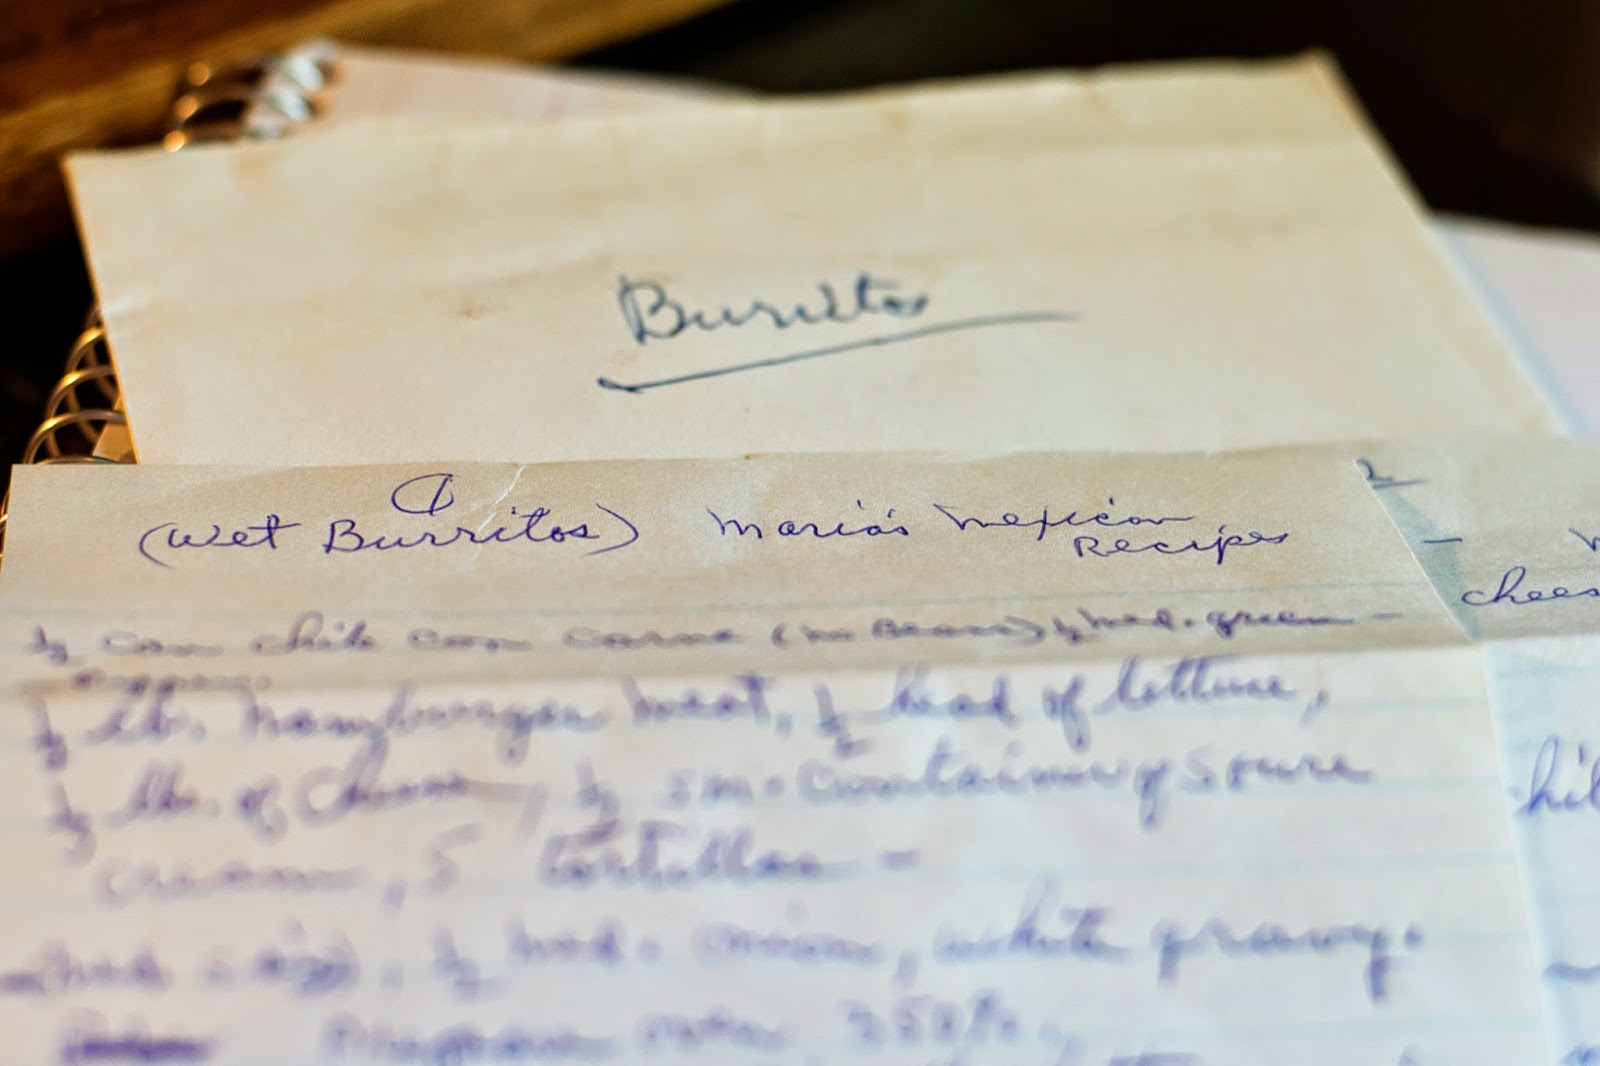 Burritos
1
(Wet Burritos) Maria's Mexican
Recipes
½ can chile con carne (no Beans) ½ med. green -
peppers.
½ lb. hamburger meat, ½ head of lettuce,
½ lb. of cheese, ½ sm. container of soure
cream, 5 tortillas -
med size, ½ med. onion, white gravy.
oven 350%
2
chees